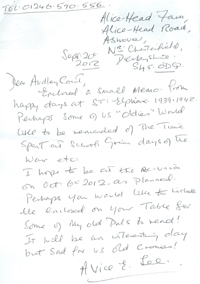 Tel: 01246-590 556.
Alice-Head Farm,
Alice-Head Road,
Ashover,
Nr Chesterfield,
Derbyshire
S45 0DQ.
Sept 20th
2012
Dear Audley Court,
Enclosed a small memo from
happy days at 1939-1948.
Perhaps some of us "Oldies" would
like to be reminded of the time
spent at School during days of the
war etc.
I hope to be at the Re-union
on Oct 6th 2012. as planned.
Perhaps you would like to include
the enclosed on your Table for
some of my old Pals to read!
It will be an interesting day
but sad for us old
Avice E. Lee.